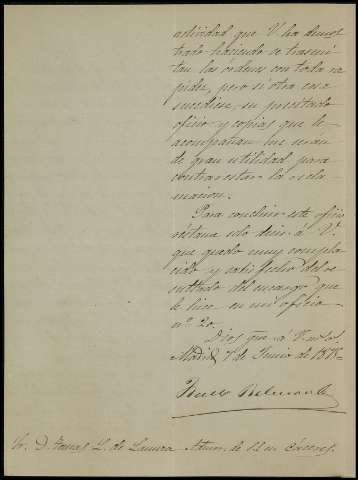 actividad que V. ha demos
trado haciendo se trasmi
tan las órdenes con toda ra
pidez, pero si otra cosa
sucediese, su precitado
oficio y copias que le
acompañan me serán
de gran utilidad para
contrarestar la recla
macion.
Para concluir este oficio
réstame solo decir á V.
que quedo muy compla
cido y satisfecho del re
sultado del encargo que
le hice en mi oficio
nº 20.
Dios gue. á V. m. os as.
Madrid 7 de Junio de 1878
Belmonte
Sr. D. Tomas L. de Admor. de en Cáceres.